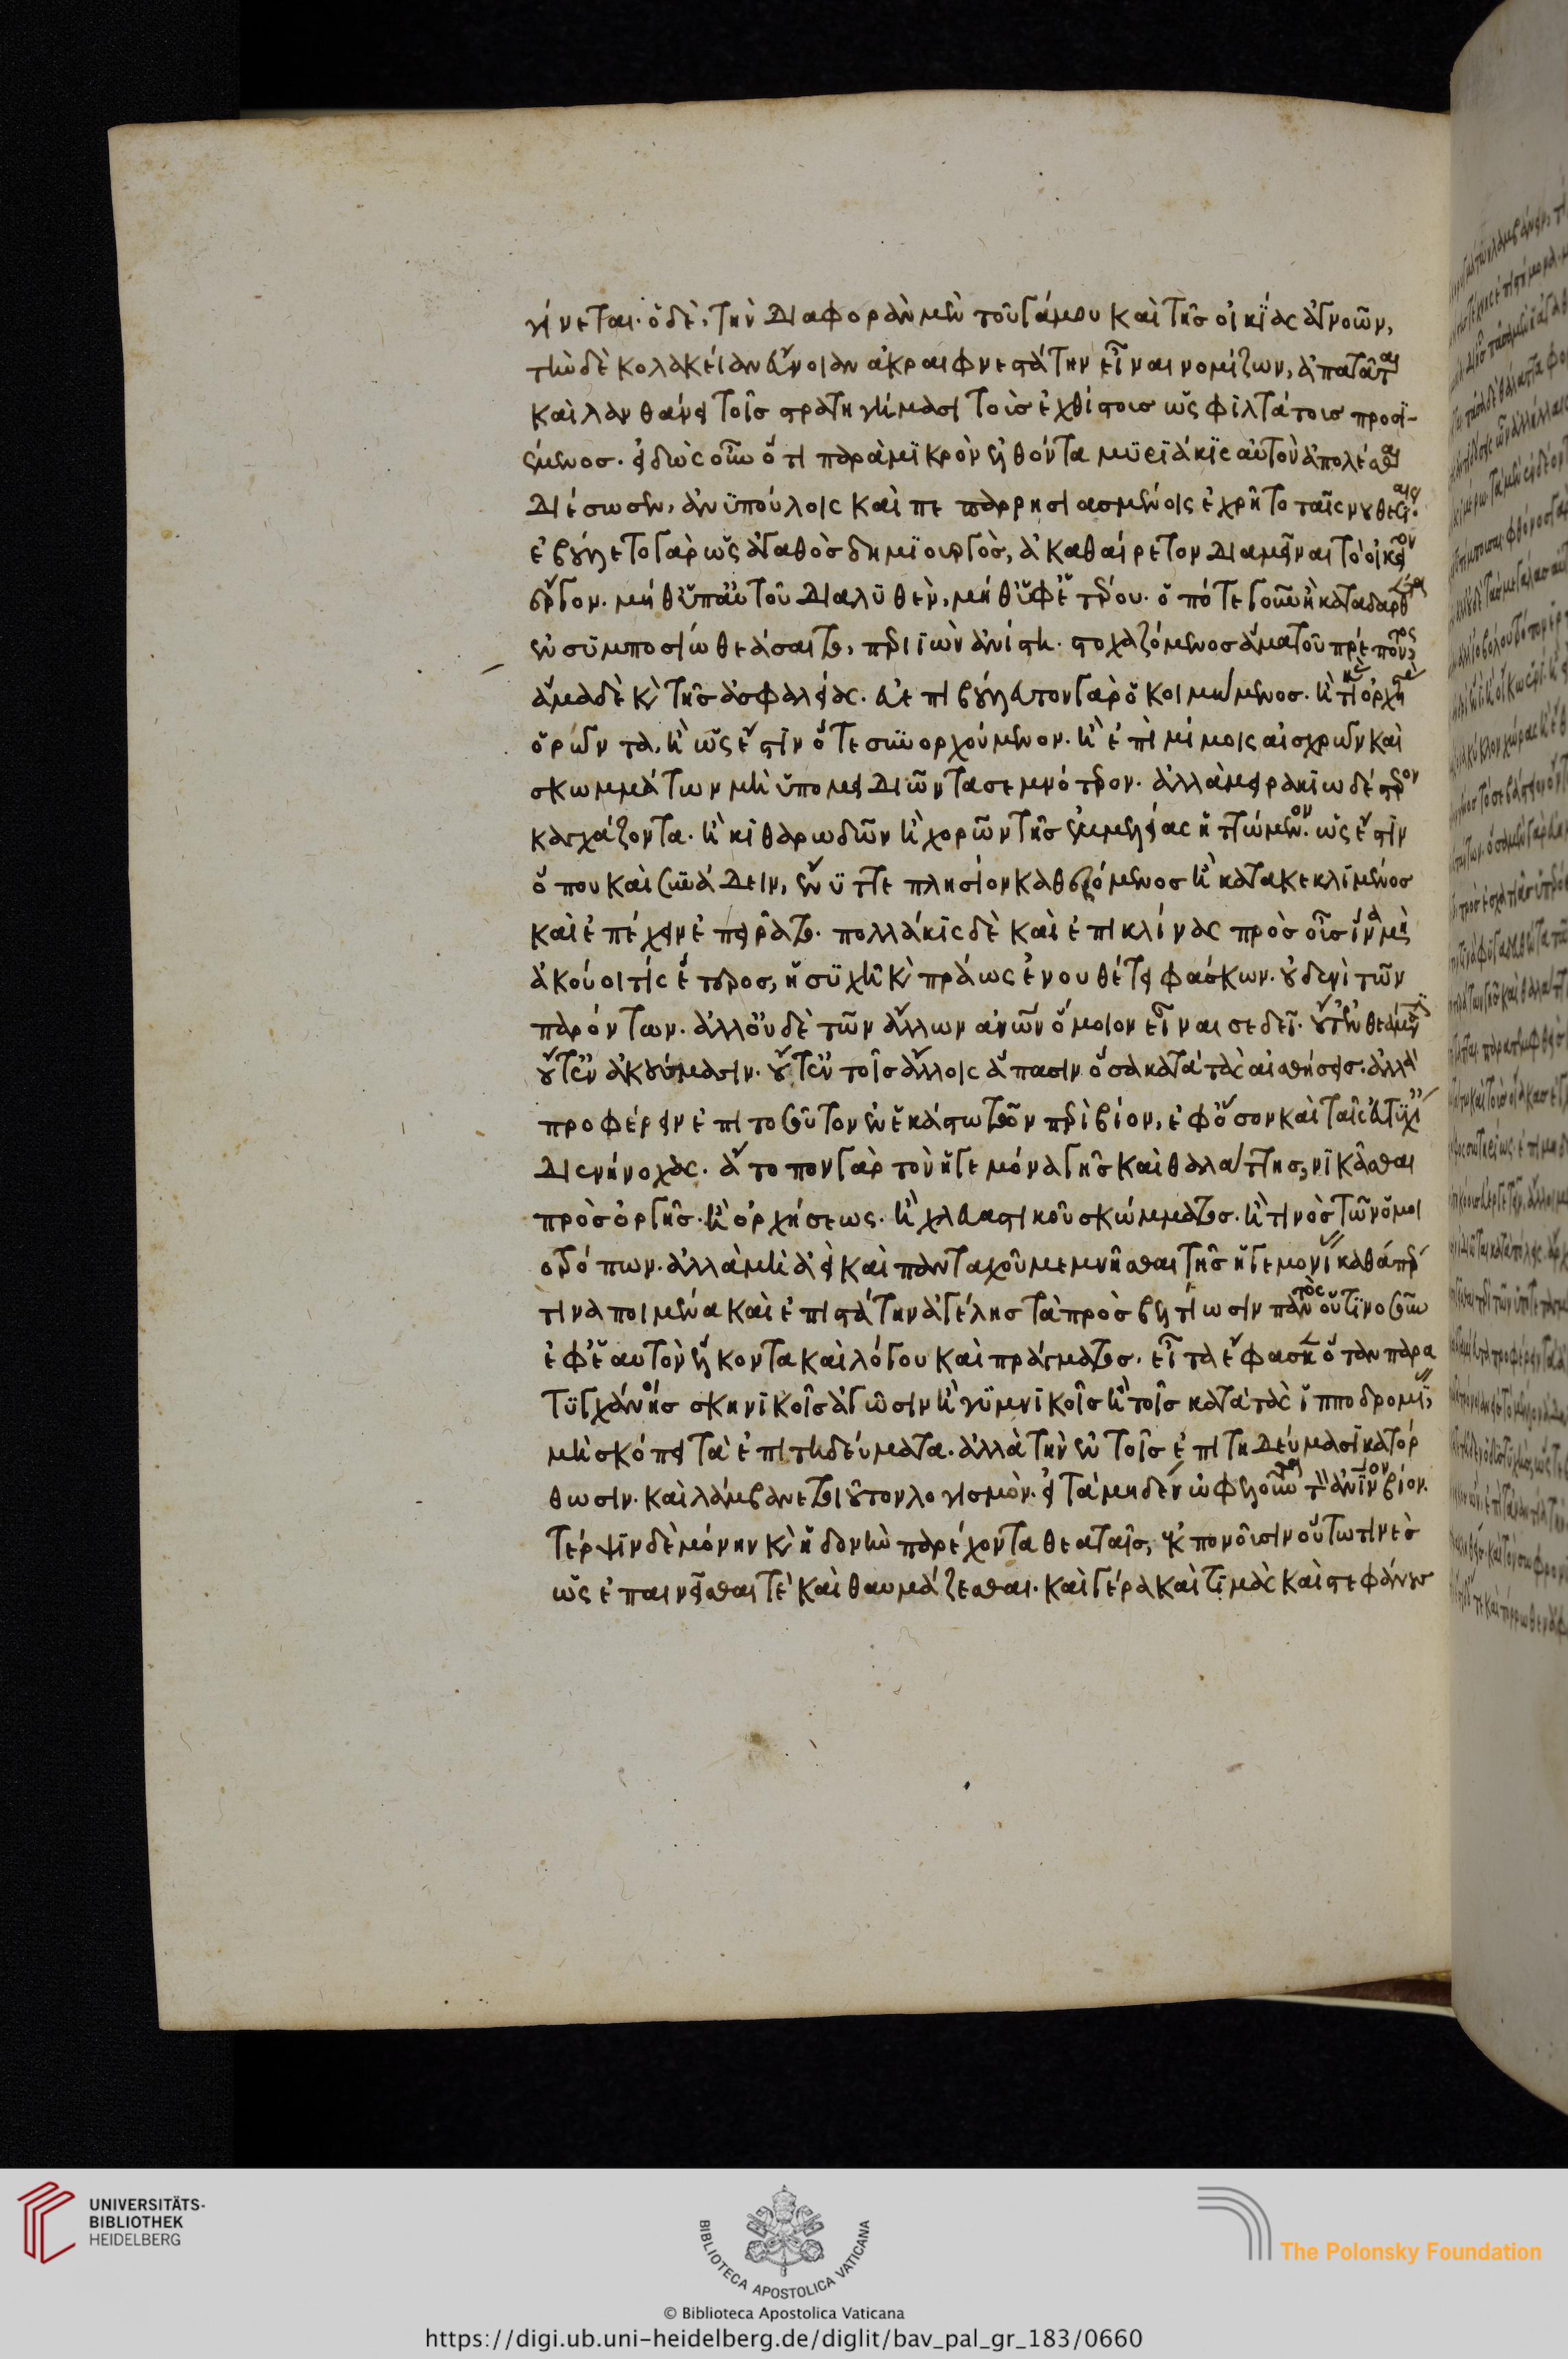 γίνεται. ὁ δὲ, τὴν διαφορὰν μὲν τοῦ γάμου καὶ τῆς οἰκϊάς ἀγνοῶν,
τὴν δὲ κολακείαν εὔνοιαν ἀκραιφνεστάτην εἶναι νομίζων, ἀπατᾶται
καὶ λανθάνει τοῖς στρατηγήμασι τοὶς ἐχθίστοις ὡς φιλτάτοις προσϊ-
έμενος. εἰδὼς οὖν ὅτι παρὰ μϊκρὸν ἐλθόντα μϋρϊάκϊς αὐτὸν ἀπολέσθαι
διέσωσεν, ἀνϋπούλοις καὶ πεπαρρησιασμένοις ἐχρῆτο ταῖς νουθεσίαις.
ἐβούλετο γὰρ ὡς ἀγαθὸς δημϊουργὸς, ἀκαθαίρετον διαμεῖναι τὸ οἰκεῖον
ἔργον. μήθ ὑπ αὐτοῦ διαλϋθὲν, μήθ ὑφ ἑτέρου. ὁπότε γοῦν ἢ καταδαρθόντα
ἐν σϋμποσίω θεάσαιτο, περιϊὼν ἀνίστη. στοχαζόμενος ἅμα τοῦ πρέποντος,
ἅμα δὲ καὶ τῆς ἀσφαλείας. εὐεπιβούλευτον γὰρ ὁ κοιμώμενος. ἢ τινὰς ὀρχηστὰς
ὁρῶντα. ἢ ὡς ἔστιν ὅτε συνορχούμενον. ἢ ἐπὶ μίμοις αἰσχρῶν καὶ
σκωμμάτων μὴ ὑπομειδιῶντα σεμνότερον. ἀλλὰ μειρακϊωδέστερον
καγχάζοντα. ἢ κϊθαρωδῶν ἢ χορῶν τῆς ἐμμελείας ἡττώμενον. ὡς ἔστιν
ὅπου καὶ συνάδειν, ἔνϋττε πλησίον καθεζόμενος ἢ κατακεκλϊμένος
καὶ ἐπέχειν ἐπειρᾶτο. πολλάκϊς δὲ καὶ ἐπικλίνας πρὸς οὖς ἵνα μὴ
ἀκούοι τίς ἕτερος, ἡσϋχῆ καὶ πράως ἐνουθέτει φάσκων. οὐδενὶ τῶν
παρόντων. ἀλλ οὐδὲ τῶν ἄλλων ἀνῶν ὅμοιον εἶναι σε δεῖ. οὔτ ἐν θεάμασιν
οὔτ ἐν ἀκούσμασιν. οὔτ ἐν τοῖς ἄλλοις ἅπασιν ὅσα κατὰ τὰς αἰσθήσεις. ἀλλὰ
προφέρειν ἐπὶ τοσοῦτον ἐν ἑκάστω τῶν περὶ βίον, ἐφ ὅσον καὶ ταῖς εὐτϋχίαις
διενήνοχας. ἄτοπον γὰρ τὸν ἡγεμόνα γῆς καὶ θαλάττης, νϊκᾶσθαι
πρὸς ὀργῆς. ἢ ὀρχήσεως. ἢ χλευαστικοῦ σκώμματος. ἢ τινὸς τῶν ὁμοι
οτρόπων. ἀλλὰ μὴ ἀεὶ καὶ πανταχοῦ μεμνῆσθαι τῆς ἡγεμονίας καθάπερ
τινα ποιμένα καὶ ἐπιστάτην ἀγέλης τὰ πρὸς βελτίωσιν παντὸς οὑτϊνοσοῦν
ἐφ ἑαυτὸν ἕλκοντα καὶ λόγου καὶ πράγματος. εἶτα ἔφασκεν ὅταν παρα
τϋγχάνης σκηνϊκοῖς ἀγῶσιν ἢ γϋμνϊκοῖς ἢ τοῖς κατὰ τὰς ἱπποδρομίας,
μὴ σκόπει τὰ ἐπιτηδεύματα. ἀλλὰ τὴν ἐν τοῖς ἐπιτηδεύμασι κατόρ
θωσιν. καὶ λάμβανε τοιοῦτον λογισμόν. εἰ τὰ μηδὲν ὠφελοῦντα τὸν ἀνθρώπϊνον βίον.
τέρψϊν δὲ μόνην καὶ ἡδονὴν παρέχοντα θεαταῖς, ἐκπονοῦσιν οὕτω τινὲς
ὡς ἐπαινεῖσθαι τὲ καὶ θαυμάζεσθαι. καὶ γέρα καὶ τϊμὰς καὶ στεφάνους
UNIVERSITÄTS-
BIBLIOTHEK
HEIDELBERG
BIBLIOTECA APOSTOLICA VATICANA
The Polonsky Foundation
© Biblioteca Apostolica Vaticana
https://digi.ub.uni-heidelberg.de/diglit/bav_pal_gr_183/0660